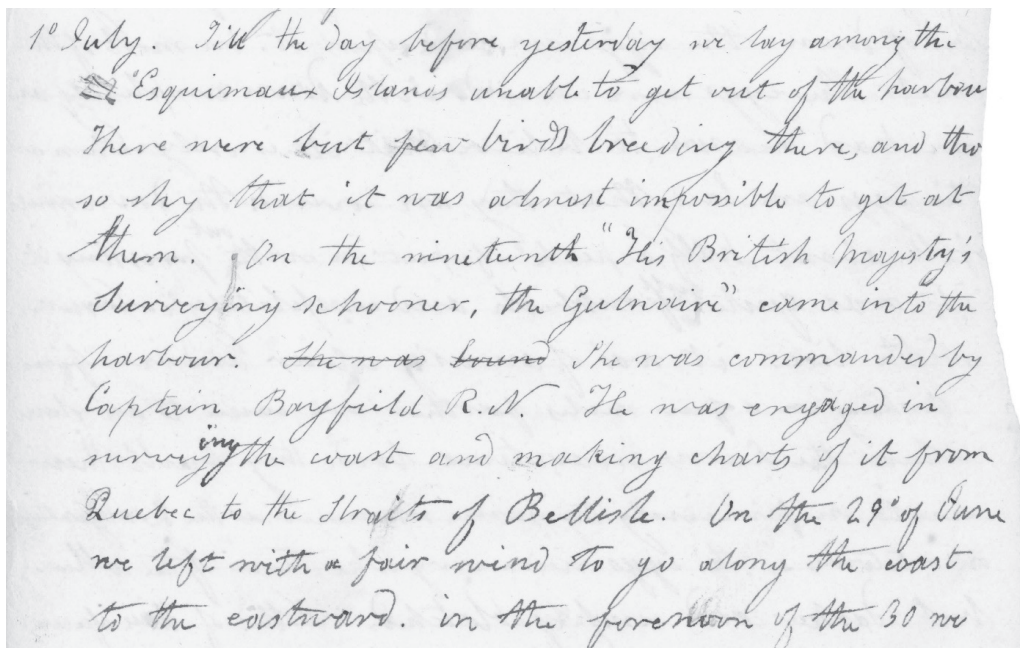 1º July. Till the day before yesterday we lay among the
Esquimaux Islands unable to get out of the harbou
There were but few birds breeding there, and tho
so shy that it was almost impossible to get at
them. On the nineteenth "His British Majesty's
Surveying schooner, the Gulnaire" came into the
harbour. She was bound She was commanded by
Captain Bayfield R.N. He was engaged in
surveying the coast and making charts of it from
Quebec to the Straits of Bellisle. On the 29º of June
we left with a fair wind to go along the coast
to the eastward. in the forenoon of the 30 we